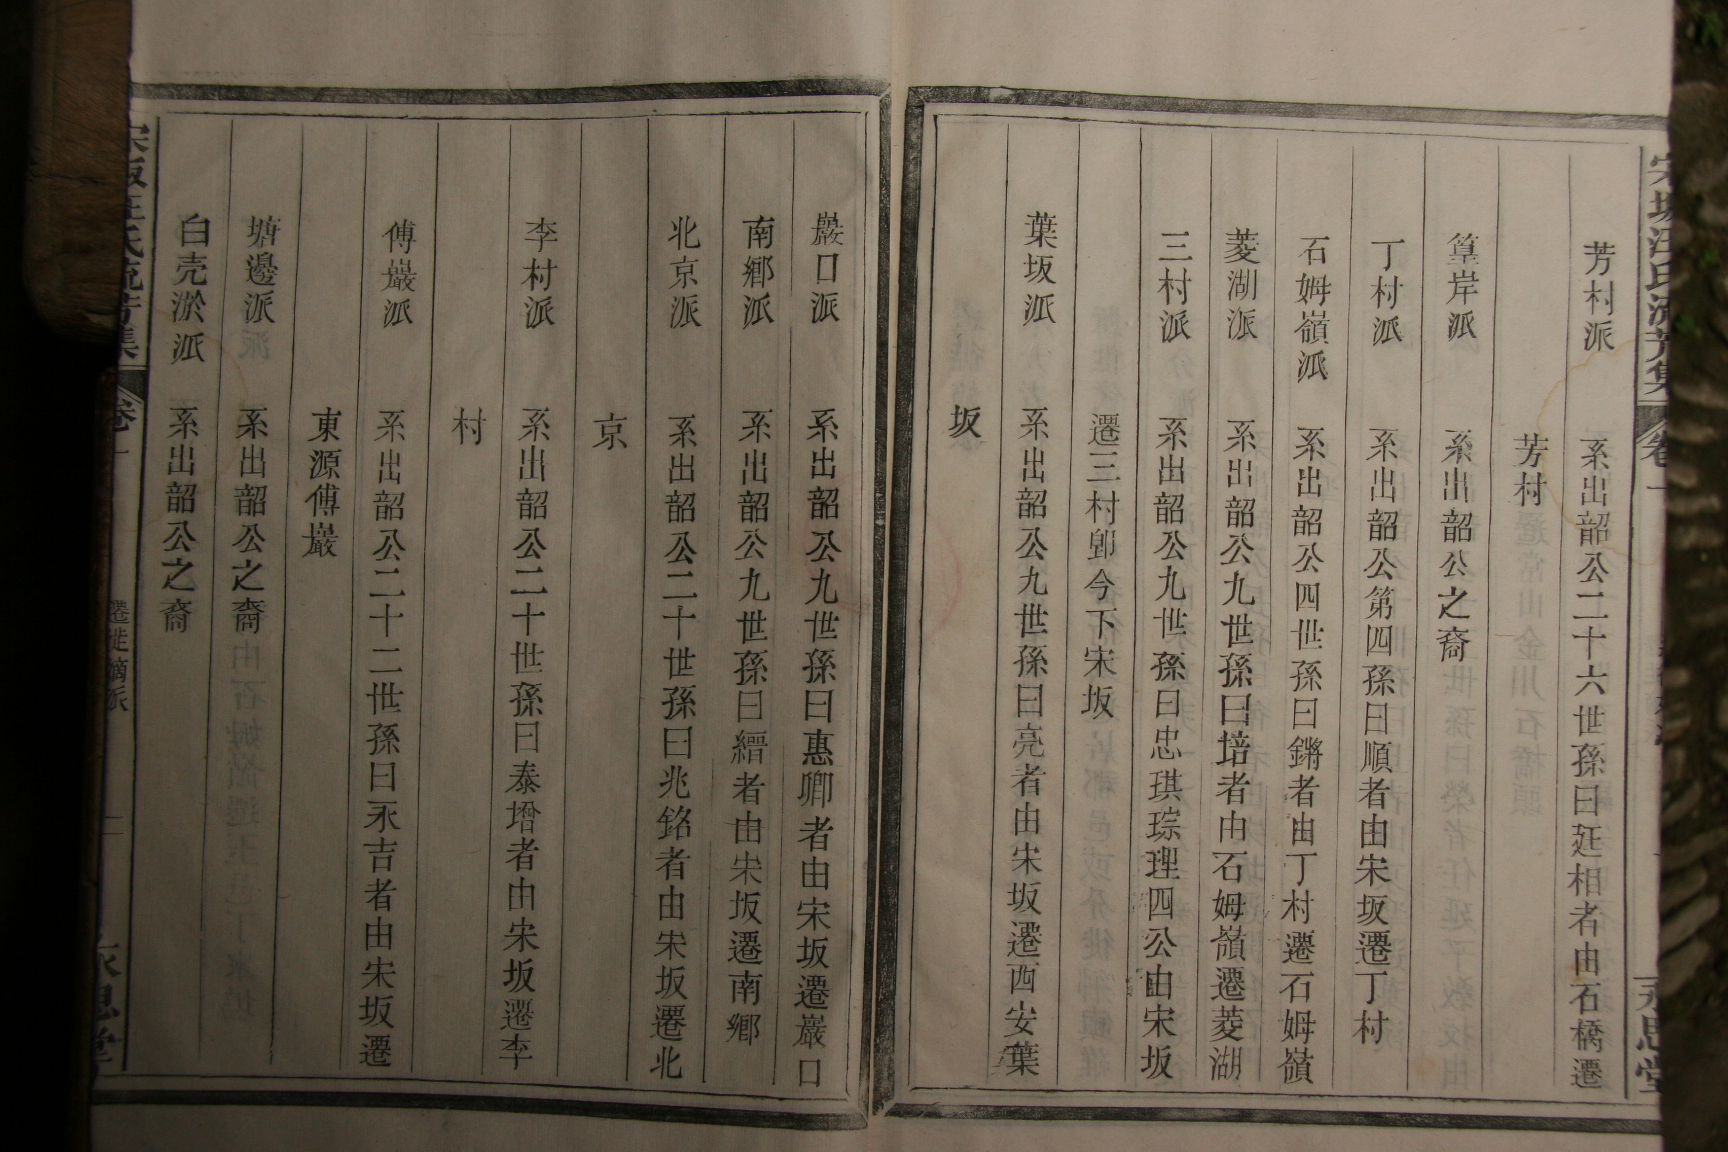 宋坂汪氏流芳集 卷一 永思堂
芳村派 系出韶公二十六世孫曰廷相者由石橋遷
芳村
篁岸派 系出韶公之裔
丁村派 系出韶公第四孫曰順者由宋坂遷丁村
石姆嶺派 系出韶公四世孫曰鏘者由丁村遷石姆嶺
菱湖派 系出韶公九世孫曰培者由石姆嶺遷菱湖
三村派 系出韶公九世孫曰忠琪琮理四公由宋坂
遷三村卽今下宋坂
葉坂派 系出韶公九世孫曰亮者由宋坂遷西安葉
坂
巖口派 系出韶公九世孫曰惠卿者由宋坂遷巖口
南鄉派 系出韶公九世孫曰縉者由宋坂遷南鄉
北京派 系出韶公二十世孫曰兆銘者由宋坂遷北
京
李村派 系出韶公二十世孫曰泰增者由宋坂遷李
村
傅巖派 系出韶公二十二世孫曰永吉者由宋坂遷
東源傅巖
塘邊派 系出韶公之裔
白壳淤派 系出韶公之裔
宋坂汪氏流芳集 卷一 遷徙嫡派 二 永思堂